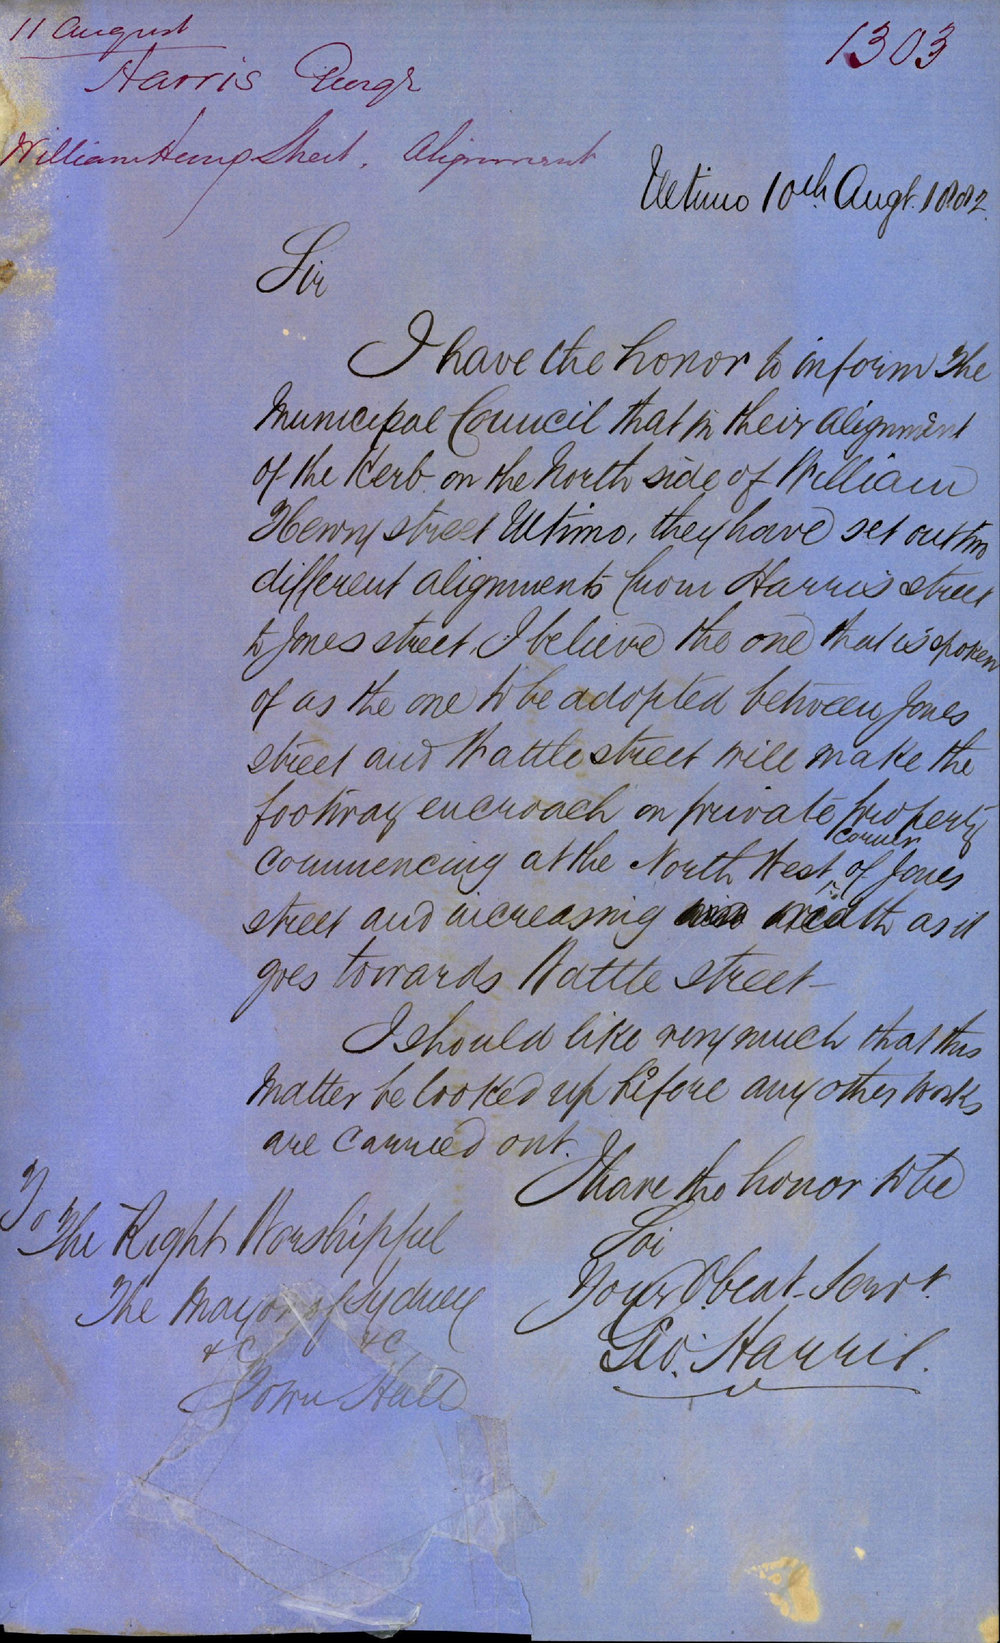 11 August
1303
Harris George
William Henry Street. Alignment
Ultimo 10th Augt. 1882.
Sir
I have the honor to inform the
Municipal Council that in their alignment
of the Kerb on the North side of William
Henry street Ultimo, they have set out two
different alignments from Harris street
to Jones street. I believe the one that is spoken
of as the one to be adopted between Jones
street and Wattle street will make the
footway encroach on private property
commencing at the North West corner of Jones
street and increasing in width as it
goes towards Wattle street –
I should like very much that this
matter be looked up before any other works
are carried out.
I have the honor to be
Sir
Your Obeat. Servt.
Geo. Harris.
To
The Right Worshipful
The Mayor of Sydney
&c &c
Town Hall